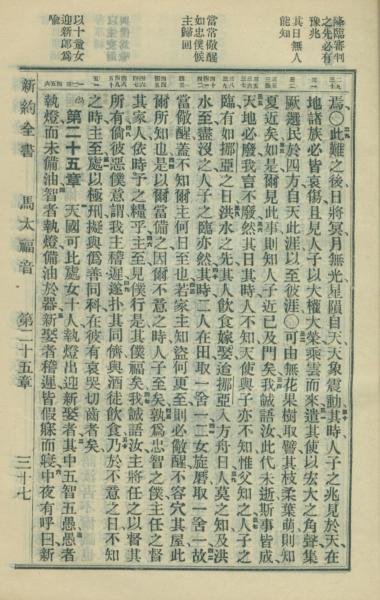 降臨審判
之先必有
豫兆
其日無人
能知
當常儆醒
如忠僕候
主歸回
以十童女
迎新郎爲
喻
焉〇此難之後日將冥月無光星隕自天天象震動其時人子之兆見於天在
地諸族必皆哀傷且見人子以大權大榮乘雲而來遣其使以宏大之角聲集
厥選民於四方自天此涯以至彼涯〇可由無花果樹取譬其枝柔葉萌則知
夏近矣如是爾見此事則知人子近已及門矣我誠語汝此代未逝斯事皆成
天地必廢我言不廢然其日其時人不知天使與子亦不知惟父知之人子之
臨有如挪亞之日洪水之先其人飲食嫁娶迨挪亞入方舟日人莫之知及洪
水至盡沒之人子之臨亦然其時二人在田取一舍一二女旋磨取一舍一故
當儆醒蓋不知爾主何日至也若家主知盜何更至則必儆醒不容穴其屋此
爾所知也是以爾當備之因爾不意之時人子至矣孰爲忠智之僕主任之督
其家人依時予之糧乎主至見僕行是其僕福矣我誠語汝主將任之以督其
所有倘彼惡僕意謂我主稽遲遂扑其同儕與酒徒飲食乃於不意之日不知
之時主至處以極刑擬與僞善同科在彼有哀哭切齒者矣
第二十五章 天國可比處女十人執燈出迎新娶者其中五智五愚愚者
執燈而未備油智者執燈備油於器新娶者稽遲皆假寐而寢中夜有呼曰新
新約全書 馬太福音 第二十五章 三十七